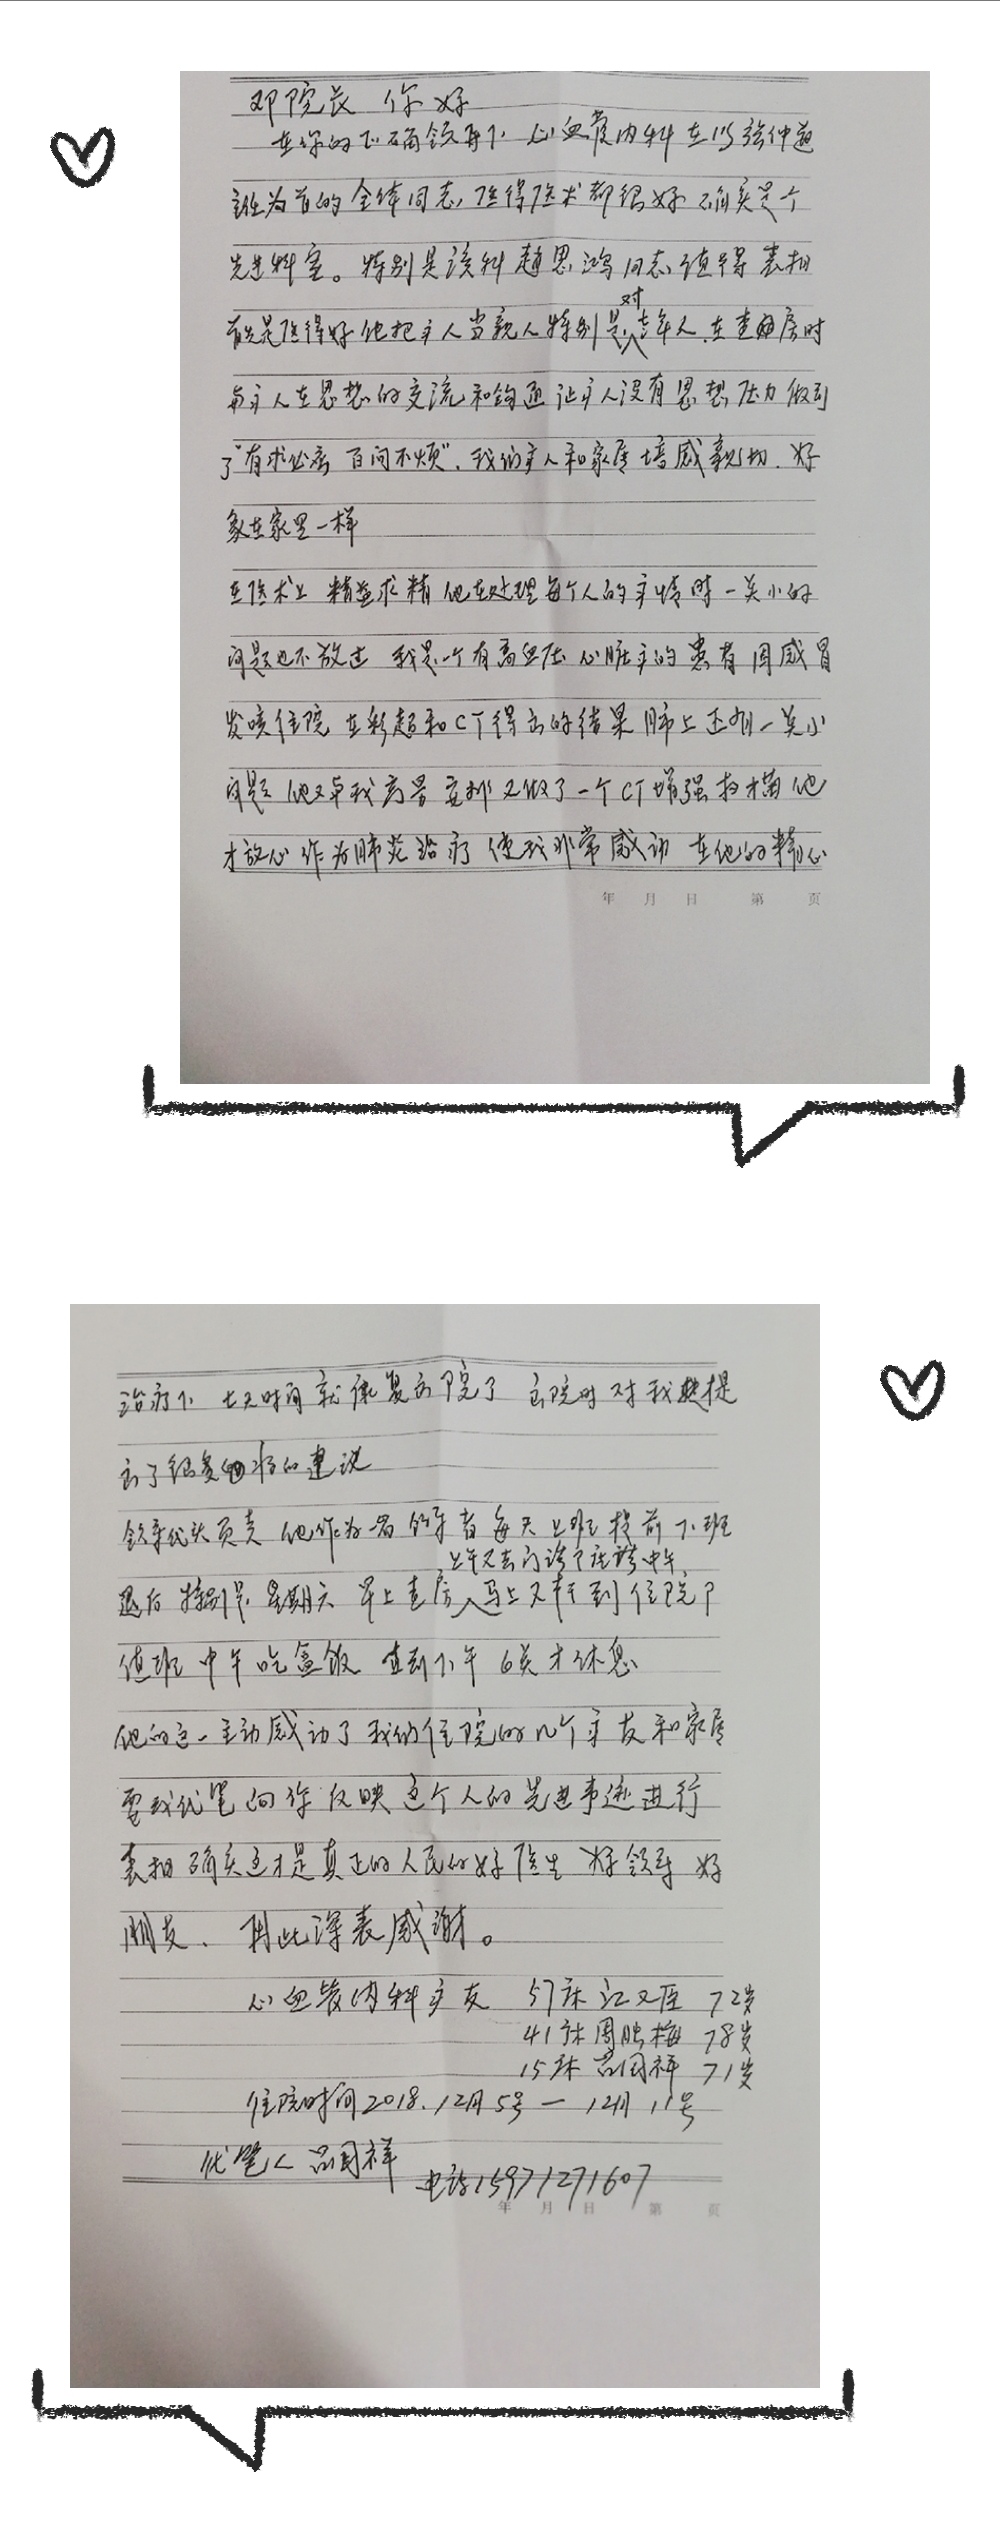 邓院长 你好
在你的正确领导下 心血管内科在以张仲道
主任为首的全体同志,医得医术都很好 确实是个
先进科室。特别是该科赵思鸿同志值得表扬
首先是医得好他把病人当亲人特别是对老年人.在查房时
与病人在思想的交流和沟通让病人没有思想压力做到
了"有求必应 百问不烦".我们病人和家属培感亲切.好
象在家里一样
在医术上 精益求精 他在处理每个人的病情时 一点小的
问题也不放过 我是一个有高血压 心脏病的患者 因感冒
发咳住院 在彩超和CT得出的结果 肺上还有一点小
问题 他又 安排又做了一个CT增强扫描他
才放心 作为肺炎治疗 使我非常感动 在他的精心
年 月 日 第 页
治疗下 七天时间就康复出院了 出院时对我 提
出了很多 的建议
领导代头负责 他作为一名领导者每天上班提前下班
上午又去门诊下 中午
退后 特别是星期六 早上查房马上又 到住院下
值班 中午吃盒饭 直到下午6点才休息
他的这一主动感动了我们住院的几个病友和家属
要我代笔向你反映这个人的先进事迹进行
表扬 确实这才是真正的人民的好医生 好领导 好
朋友. 再此深表感谢。
心血管内科病友 57床 江又 72岁
41床 周 梅 78岁
15床 吕国祥 71岁
住院时间2018.12月5号一12月11号
代笔人 吕国祥
电话15971271607
年 月 日 第 页